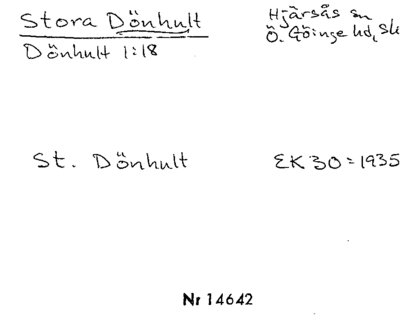 Stora Dönhult
Hjärsås sn
Ö. Göinge hd, Sk
Dönhult 1:18
St. Dönhult
EK 30 = 1935
Nr 14642